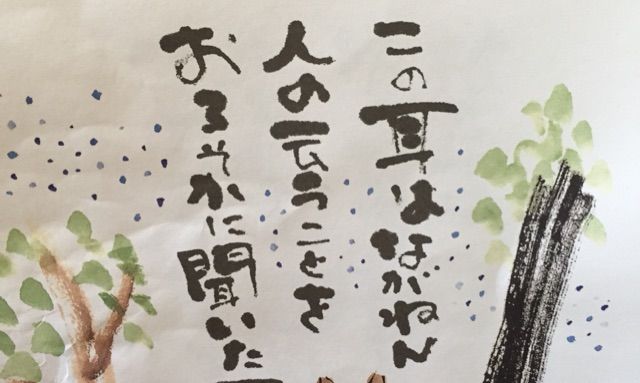 この耳はながねん
人の云うことを
おろそかに聞いた